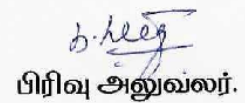 பிரிவு அலுவலர்.